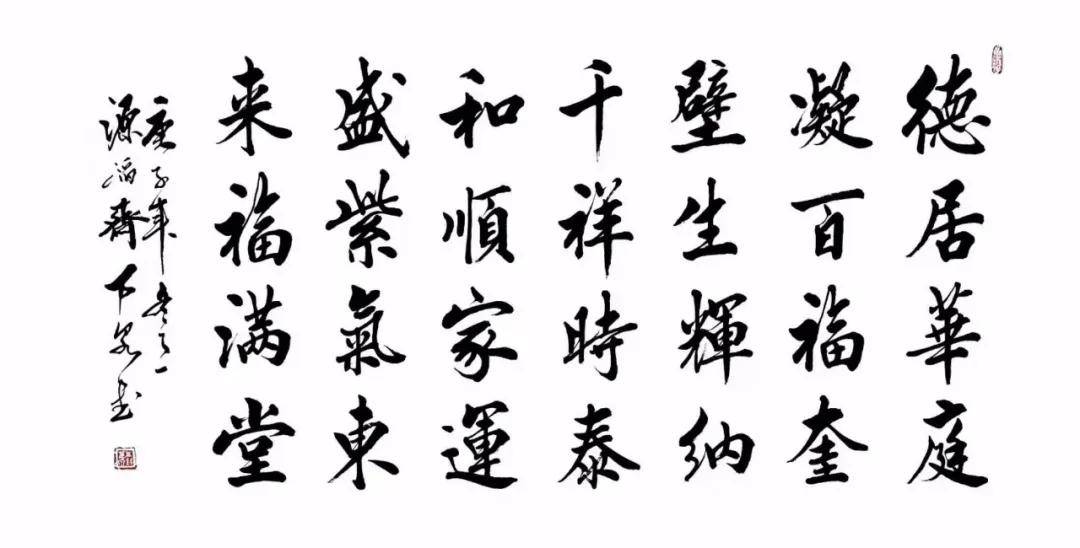 德居華庭
凝百福奎
壁生輝納
千祥時泰
和順家運
盛紫氣東
来福满堂
庚子年
源滔齋下 书